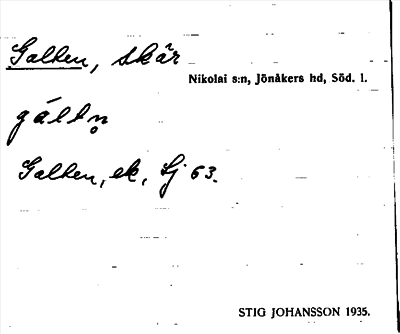 Galten, skär
Nikolai s:n, Jönåkers hd, Söd. l.
gál̀tn̥
Galten, ek, Sj 63.
STIG JOHANSSON 1935.